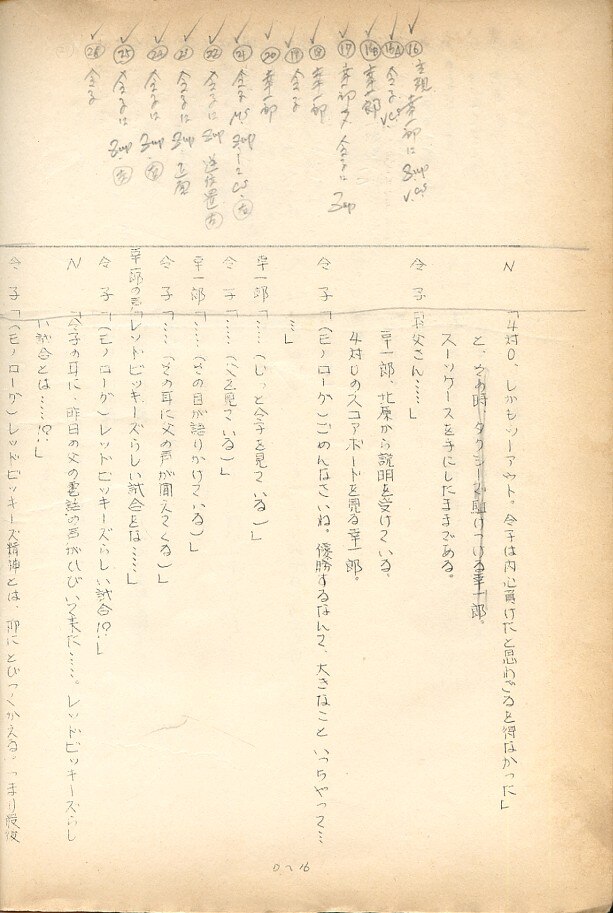 ⑯ 主観 幸一郎に Zup V.CS
⑮A 令子 V.CS
⑯B 幸一郎
⑰ 幸一郎ナメ 令子に Zup
⑱ 幸一郎
⑲ 令子
⑳ 幸一郎
㉑ 令子 MS Zup CS 右
㉒ 令子に Zup 逆位置 右
㉓ 令子に Zup 正面
㉔ 令子に Zup 右
㉕ 令子に Zup
㉖ 令子
N 「4対0、しかもツーアウト。令子は内心負けだと思わざるを得なかった」
と、その時、タクシーで駈けつける幸一郎。
スーツケースを手にしたままである。
令子「お父さん……」
幸一郎、北原から説明を受けている。
4対0のスコアボードを見る幸一郎。
令子「(モノローグ)ごめんなさいね。優勝するなんて、大きなこといっちやって…
…」
幸一郎「……(じっと令子を見ている)」
令子「……(父を見ている)」
幸一郎「……(その目が語りかけている)」
令子「……(その耳に父の声が聞えてくる)」
幸一郎の声「レッドビッキーズらしい試合とは……」
令子「(モノローグ)レッドビッキーズらしい試合!?」
N 「令子の耳に、昨日の父の電話の声がひびいて来た……。レッドビッキーズらし
い試合とは……!?」
令子「(モノローグ)レッドビッキーズ精神とは、柳にとびつくかえる、つまり